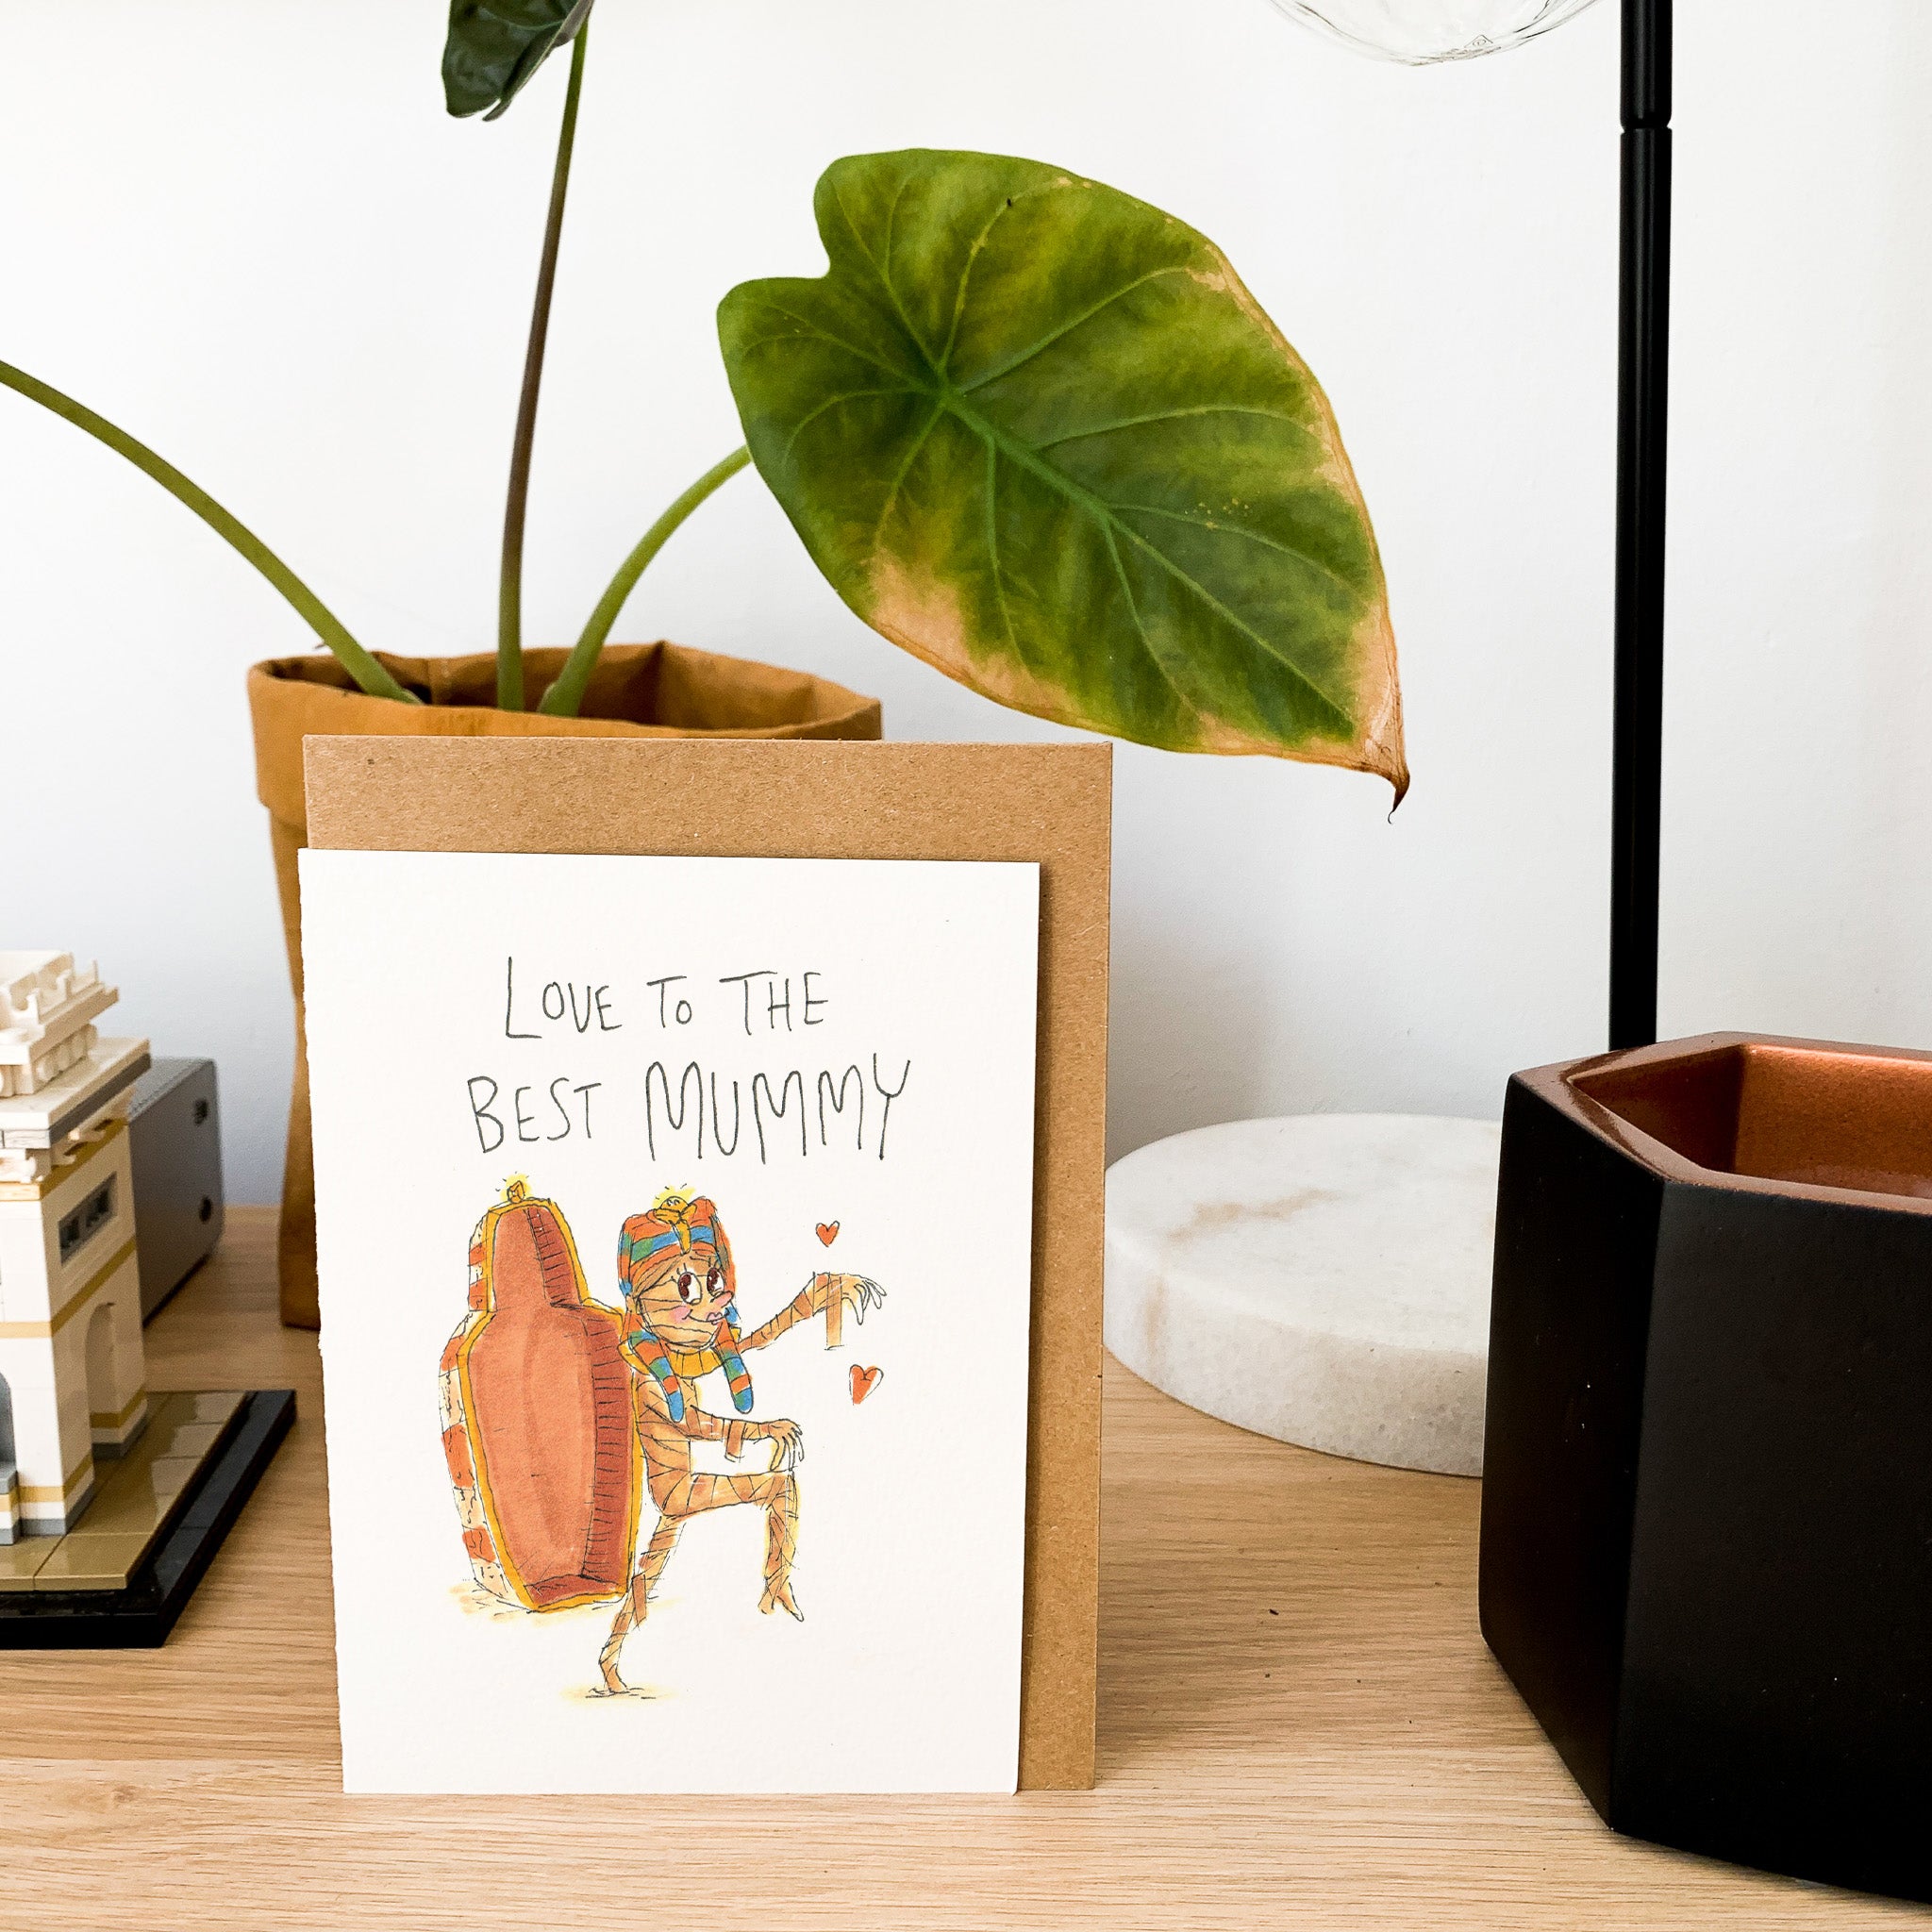 LOVE TO THE
BEST MUMMY